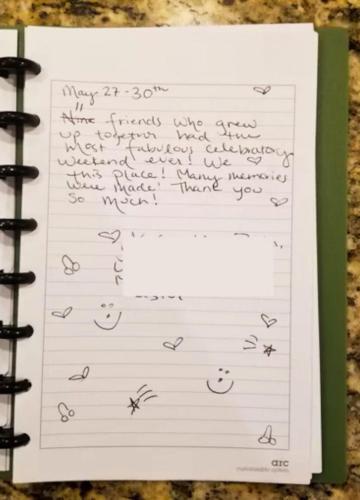 May 27-30th
11
Nine friends who grew
up together had the
most fabulous celebratory
weekend ever! We ♡
this place! Many memories
were made! Thank you
so much!
arc
customizable system